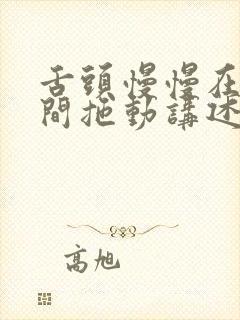 舌頭慢慢在
間拖動講述
高旭